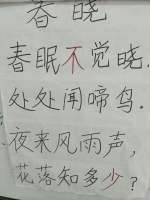 春晓
春眠不觉晓.
处处闻啼鸟.
夜来风雨声,
花落知多少?